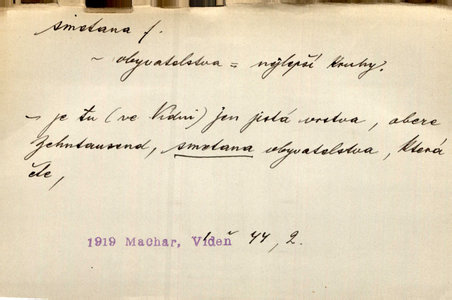 smetana f.
~ obyvatelstva = nejlepší kruhy.
~ je tu (ve Vídni) jen jistá vrstva, obere
Zehntausend, smetana obyvatelstva, která
čte,
1919 Machar, Vídeň 44, 2.